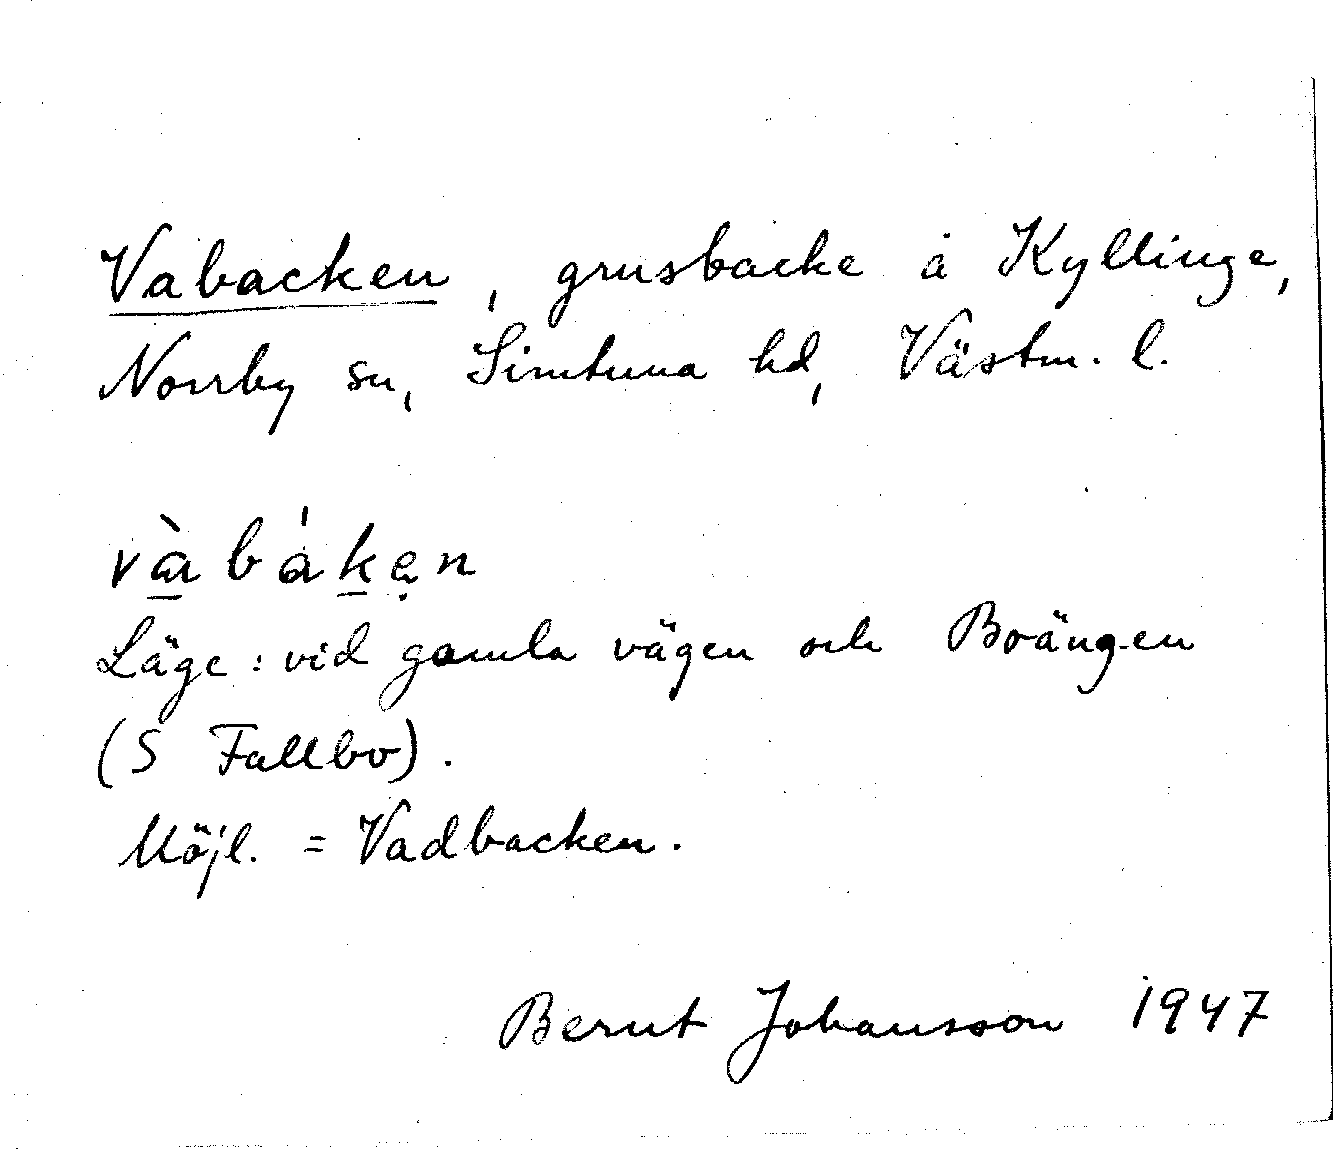 Vabacken, grusbacke å Kyllinge,
Norrby sn, Simtuna hd, Västm. l.
và̱bákẹn
Läge: vid gamla vägen och Boängen
(S Fallbo).
Möjl. = Vadbacken.
Bernt Johansson 1947